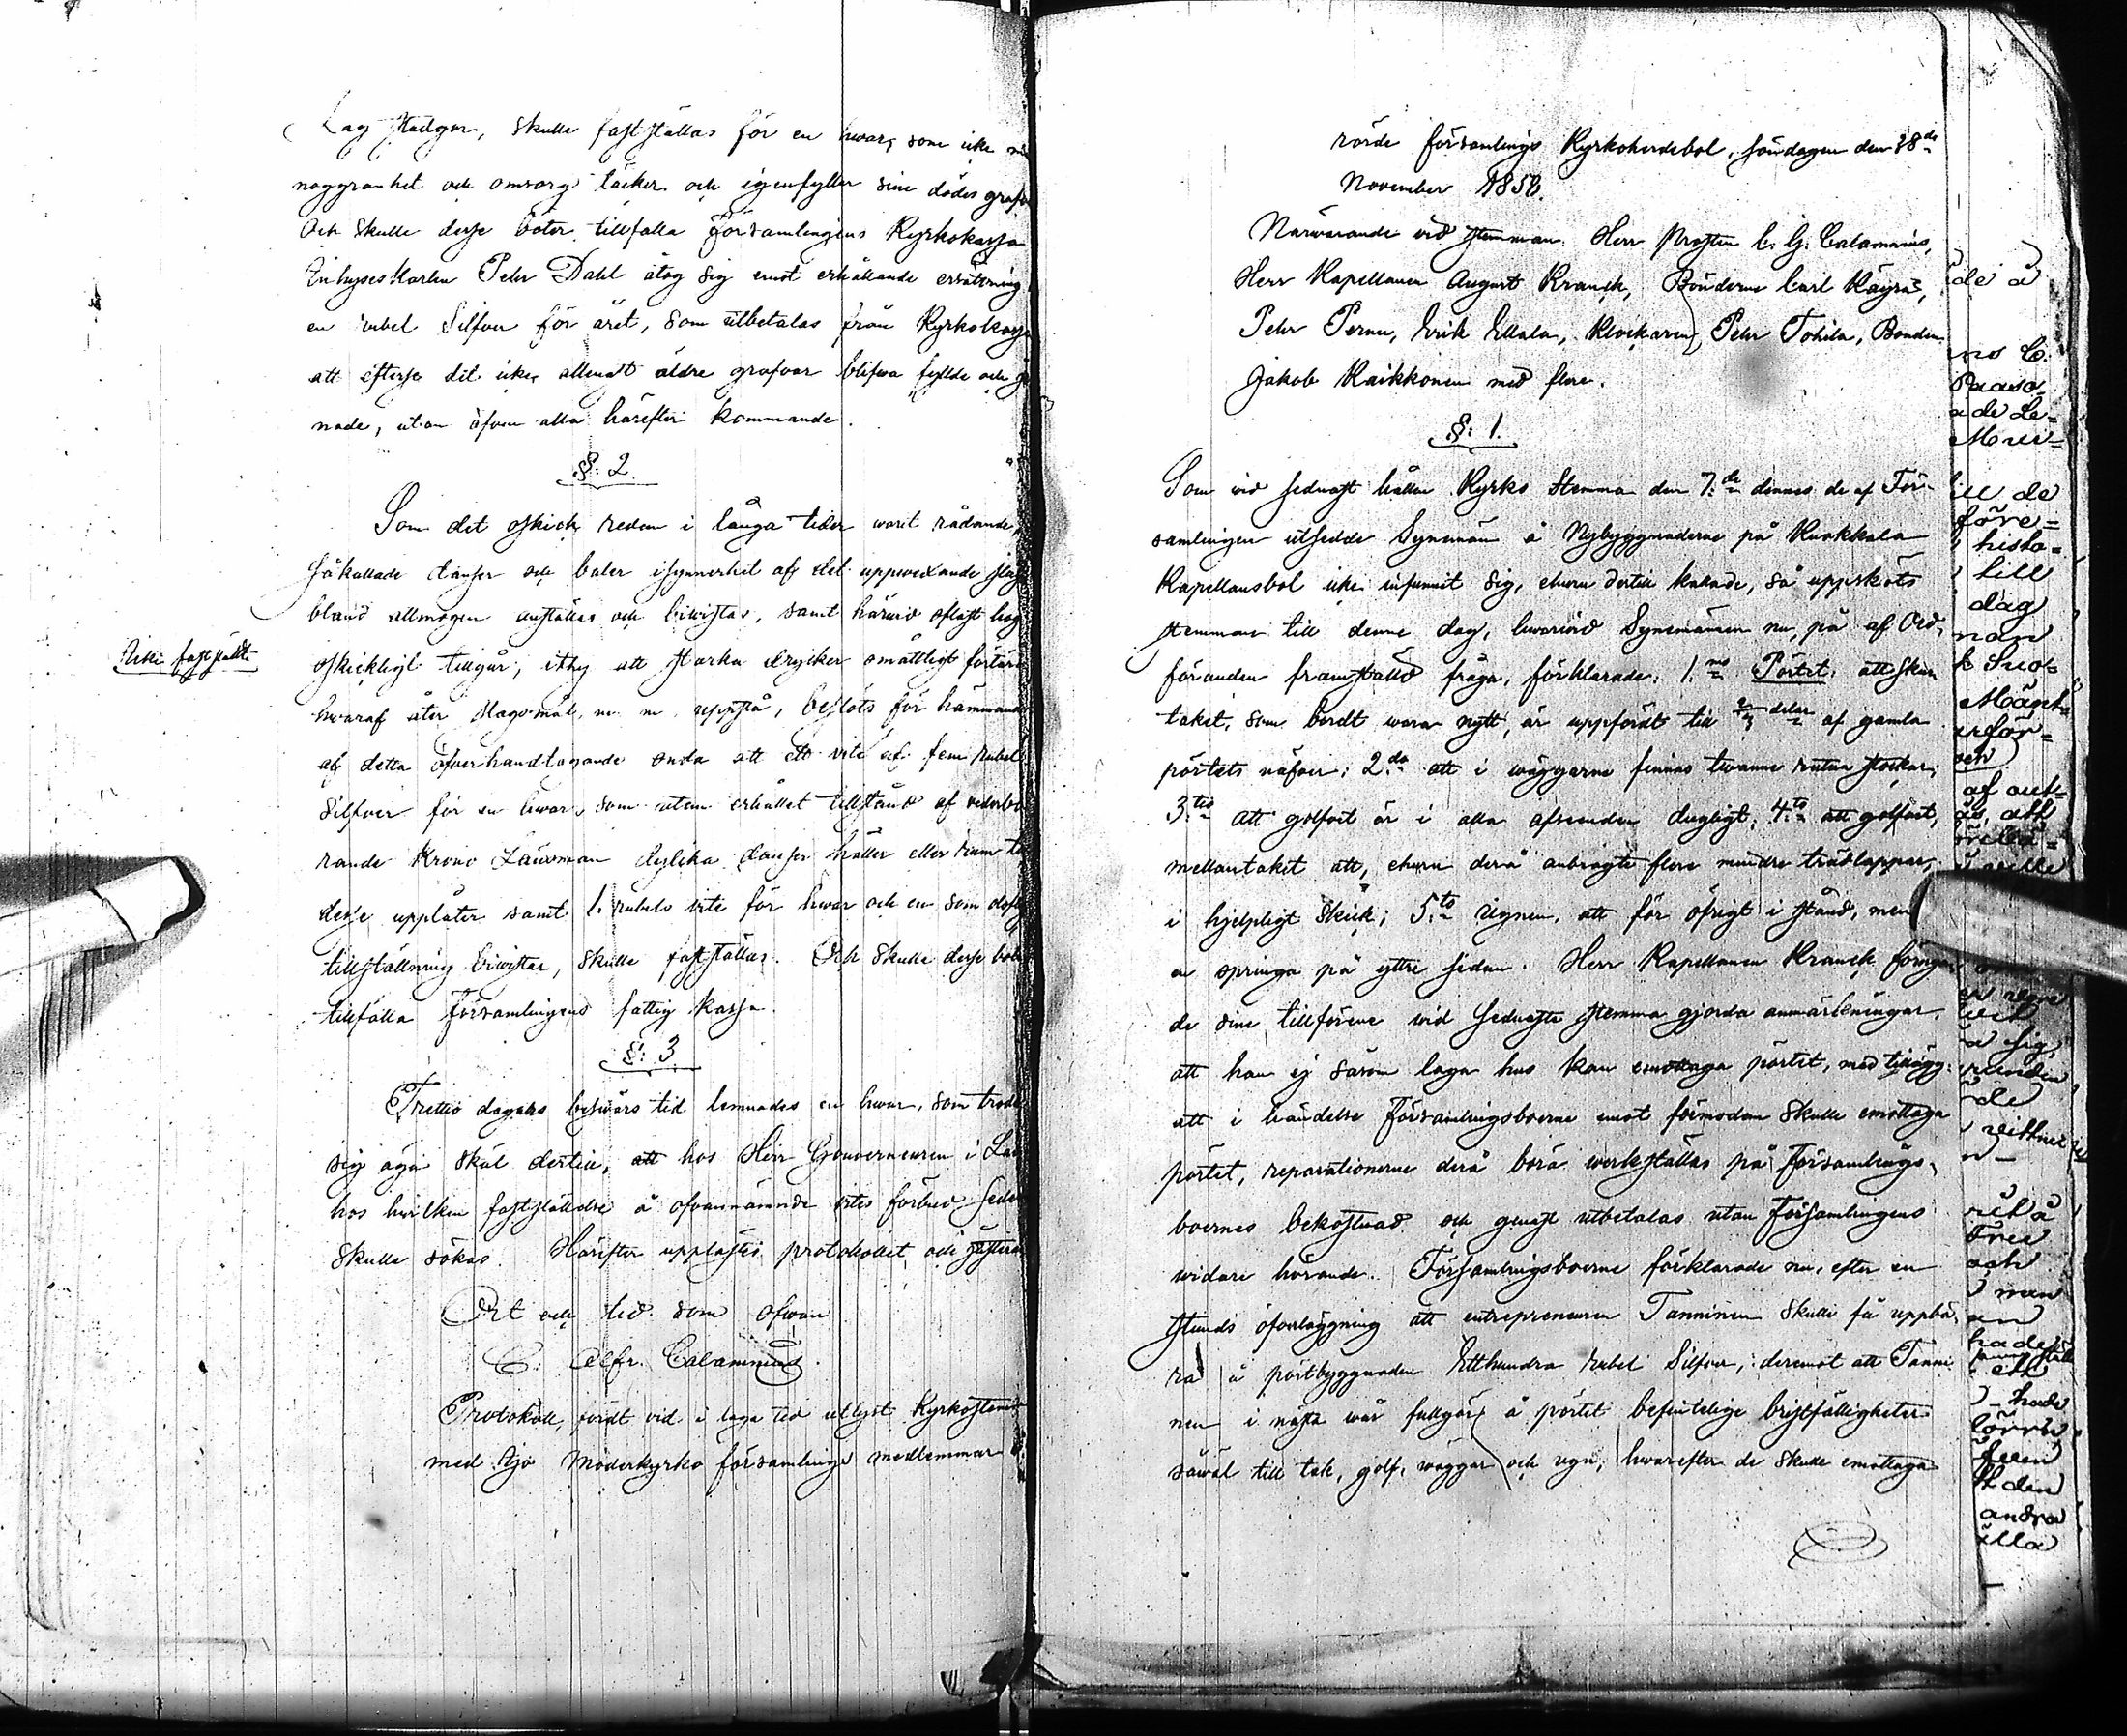 Lag stadgar, skulle fastställas för en hwar, som icke
noggranhet och omsorg täcker och igenfyller sine dödes
Och skulle desse böter tillfalla Församlingens Kyrkokassa
Inhyses Karlen Pehr Dahl åtog sig emot erhållande ersättning
en rubel Silfver för året, som utbetalas från Kyrkokassa
att efterse det icke allenast äldre grafvar blifwa fyllde och
nade, utan äfven alla härefter kommande.
§: 2
Som det oskick redan i långa tider warit rådande,
såkallade danser och baler isynnerhet af det uppwexande
bland allmogen anställas och biwistas, samt härwid oftast
oskickligt tillgår, ithy att starka drycker omåttligt
hwaraf åter slagsmål, m. m. uppstå, beslöts för hämmande
af detta öfverhandtagande onda att ett vite af fem rubel
Silfver för en hwar, som utan erhållet tillstånd af
rande Krono Länsman dylika danser håller eller rum
desse upplåter samt 1. rubels vite för hwar och en som
tillställning biwistar, skulle fastställas. Och skulle desse
tillfalla Församlingens fattig kassa.
Icke fastställt
§: 3
Trettio dagars beswärs tid lemnades en hwar, som
sig äga skäl dertill, att hos Herr Gouverneuren i
hos hwilken fastställelse å ofvannämnde vites förbud
skulle sökas. Härefter upplästes protokollet och
Ort och tid som ofwan
C. Alfr. Calamnius.
Protokoll, fördt vid i laga tid utlyst Kyrkostämma
med Ijo Moderkyrko församlings medlemmar
rörde församlings Kyrkoherdebol, söndagen den 28de
November 1858.
Närwarande wid stemman: Herr Prosten C. G. Calamnius,
Herr Kapellanen August Kranck, Bönderne Carl Käyrä,
Pehr Pernu, Erik Ellala, Klockaren Pehr Tohila, Bonden
Jakob Kaikkonen med flere.
§: 1.
Som wid sednast hållne Kyrko Stemma den 7de dennes de af För-
samlingen utsedde Synemän å Nybyggnaderne på Kuokkala
Kapellansbol icke infunnit sig, ehuru dertill kallade, så uppsköts
stemman till denne dag, hwarwid Synemännen nu, på af Ord-
föranden framställd fråga, förklarade: 1mo Pörtet: att
taket, som bordt wara nytt, är uppfördt till delar af gamla
pörtets näfver; 2do att i wäggarne finnas twänne rutna stockar;
3tio att golfvet är i alla afseenden dugligt; 4to att golfvet,
mellantaket att, ehuru derå anbragte flere mindre trädlappar,
i hjelpligt skick; 5to Ugnen, att för öfrigt i stånd, men
en springa på yttre sidan. Herr Kapellanen Kranck
de sine tillförene wid sednaste stemma gjorda anmärkningar,
att han ej såsom laga hus kan emottaga pörtet, med tillägg:
att i händelse Församlingsboerne emot förmodan skulle emottaga
pörtet, reparationerne derå böra werkställas på Församlings-
boernes bekostnad och genast utbetalas utan Församlingens
widare hörande. Församlingsboerne förklarade nu, efter en
stunds öfwerläggning att entrepreneuren Tanninen skulle få uppbä-
ra å pörtbyggnaden Etthundra rubel Silfver, deremot att Tanni-
nen i nästa wår fullgör å pörtet befintelige bristfälligheter
såwäl till tak, golf, wäggar och ugn, hwarefter de skulle emottaga
till
dag
andra